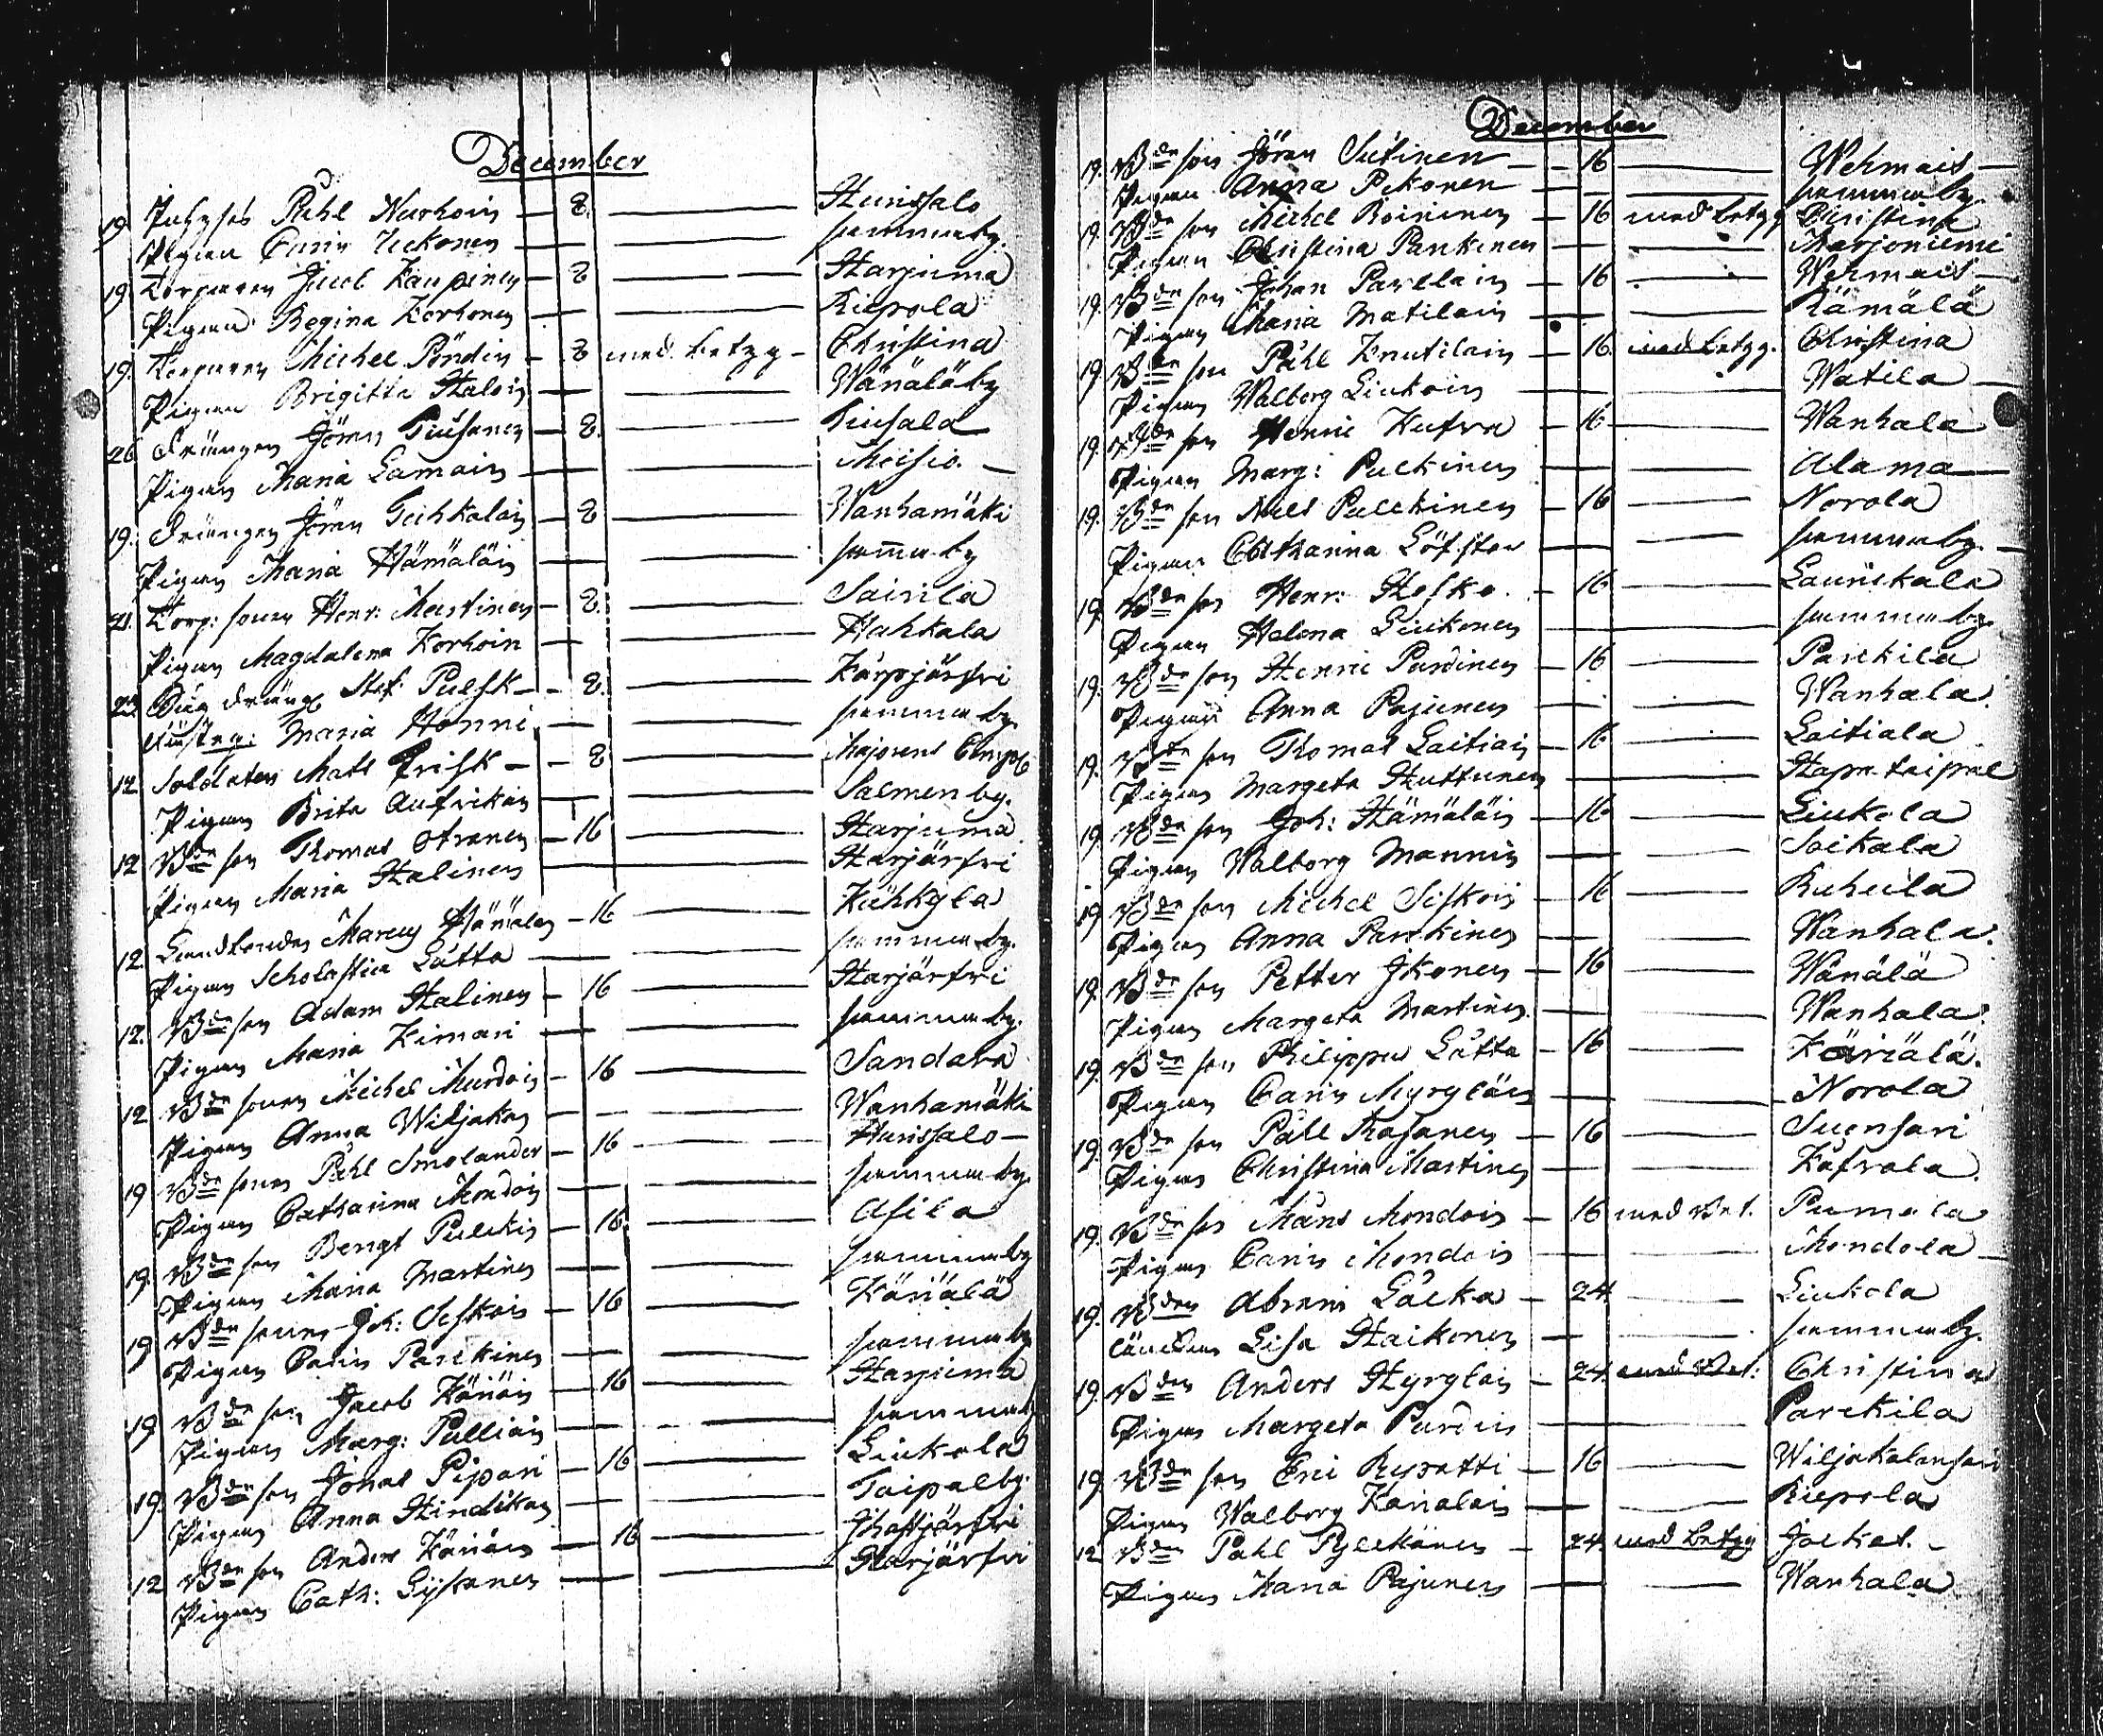 December
19. Inhyses Påhl Narhoin — 8. — Hurissalo
Pigan Carin Uckonen — — samma by.
19. Torparen Jacob Kaupinen — 8 — — Harjuma
Pigan Regina Korhonen — — Kiepola
19. Torparen Michel Pöndin — 8 med betyg — Christina
Pigan Brigitta Haloin — — Wänälä by
26 Drängen Jöran Tiusanen — 8. — Tiusala
Pigan Maria Lamain — — Moisio. —
19. Drängen Jöran Tuhkalain — 8 — Wanhamäki
Pigan Maria Hämäläin — — samma by
21. Torp: sonen Henr: Martinen — 8. — Sairila
Pigan Magdalena Korhoin — — Hahkala
23. Dräng Stef: Pulsk — 8. — Karpjärfvi
Maria Honni — — samma by.
12 Soldaten Mats Frisk — — 8 — Majorens Comp:
Pigan Brita Aufvikain — — Salmen by.
12 Bde son Thomas Otranen — 16 — Harjuma
Pigan Maria Halinen — — Harjärfvi
12. Landbonden Marcus Hämälen — 16 — Kuhkyla
Pigan Scholastica Lätta — — samma by.
12. Bde son Adam Halinen — 16 — Harjärfvi
Pigan Maria Kimari — — samma by.
12 Bde sonen Michel Mardoin — 16 — Sandala
Pigan Anna Wiljakain — — Wanhamäki
19 Bde sonen Påhl Smolander — 16 — Hurissalo —
Pigan Catharina Mondoin — — samma by.
19. Bde son Bengt Pulckin — 16. — Asila
Pigan Maria Martinen — — samma by
19 Bde sonen Joh: Siskoin — 16 — Käriälä
Pigan Carin Parckinen — — samma by
19 Bde son Jacob Käriäin — 16 — Harjuma
Pigan Marg: Pulliain — — samma by
19. Bde son Jonas Pipari — 16 — Liukola
Pigan Anna Hindikain — — Taipal by.
12 Bde son Anders Käriäin — 16 — Ihastjärfvi
Pigan Cath: Lyytinen — — Harjärfvi
December
19. Bde son Jöran Sutinen — 16 — Wehmais —
Pigan Anna Pekonen — — samma by.
19. Bde son Michel Roininen — 16 med betyg Christina
Pigan Christina Pankinen — — Karjoniemi
19. Bde son Johan Parllain — 16 — Wehmais —
Pigan Maria Matilain — — Rämälä
19. Bde son Påhl Knutilain — 16. med betyg. Christina
Pigan Walborg Liukoin — — Watila —
19. Bde son Henric Kufva — 16 — Wanhala
Pigan Marg: Puckinen — — Alama —
19. Bde son Nils Pulckinen — 16 — Norola
Pigan Catharina Löfstor — — samma by. —
19. Bde son Henr: Hasko. — 16 — Lauriskala
Pigan Helena Liukonen — — samma by.
19. Bde son Henric Pardinen — 16 — Parckila
Pigan Anna Pajunen — — Wanhala.
19. Bde son Thomas Laitiain — 16 — Laitiala
Pigan Margeta Huttunen — — Hapataipal
19. Bde son Joh: Hämäläin — 16 — Liukola
Pigan Walborg Mannin — — Soikala
19. Bde son Michel Siskoin — 16 — Ruheila
Pigan Anna Parckinen — — Wanhala.
19. Bde son Petter Ikonen — 16 — Wänälä
Pigan Margeta Martinen — — Wanhala.
19. Bde son Philippus Lätta — 16 — Käriälä.
Pigan Carin Myryläin — — Norola
19. Bde son Påhl Thosanen — 16 — Suensari
Pigan Christina Martinen — — Kafvala
19. Bde son Måns Mondoin — 16 med Bet. Pumala
Pigan Carin Mondoin — — Mondola —
19. Bden Abram Lacka — 24. — Liukola
Änckan Lisa Haikonen — — samma by.
19. Bden Anders Hyryläin — 24. med Bet: Christina
Pigan Margeta Pardin — — Parckila
19. Bde son Eric Rypatti — 16 — Wiljakalansari
Pigan Walborg Karialain — — Kiepola
12 Bden Påhl Pylckänen — 24. med betyg Jockas. —
Pigan Maria Pajunen — — Wanhala